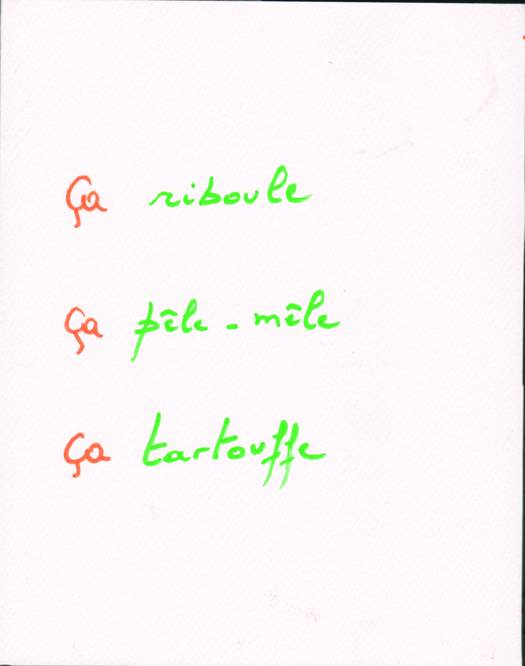 Ça riboule
Ça pêle-mêle
Ça tartouffe